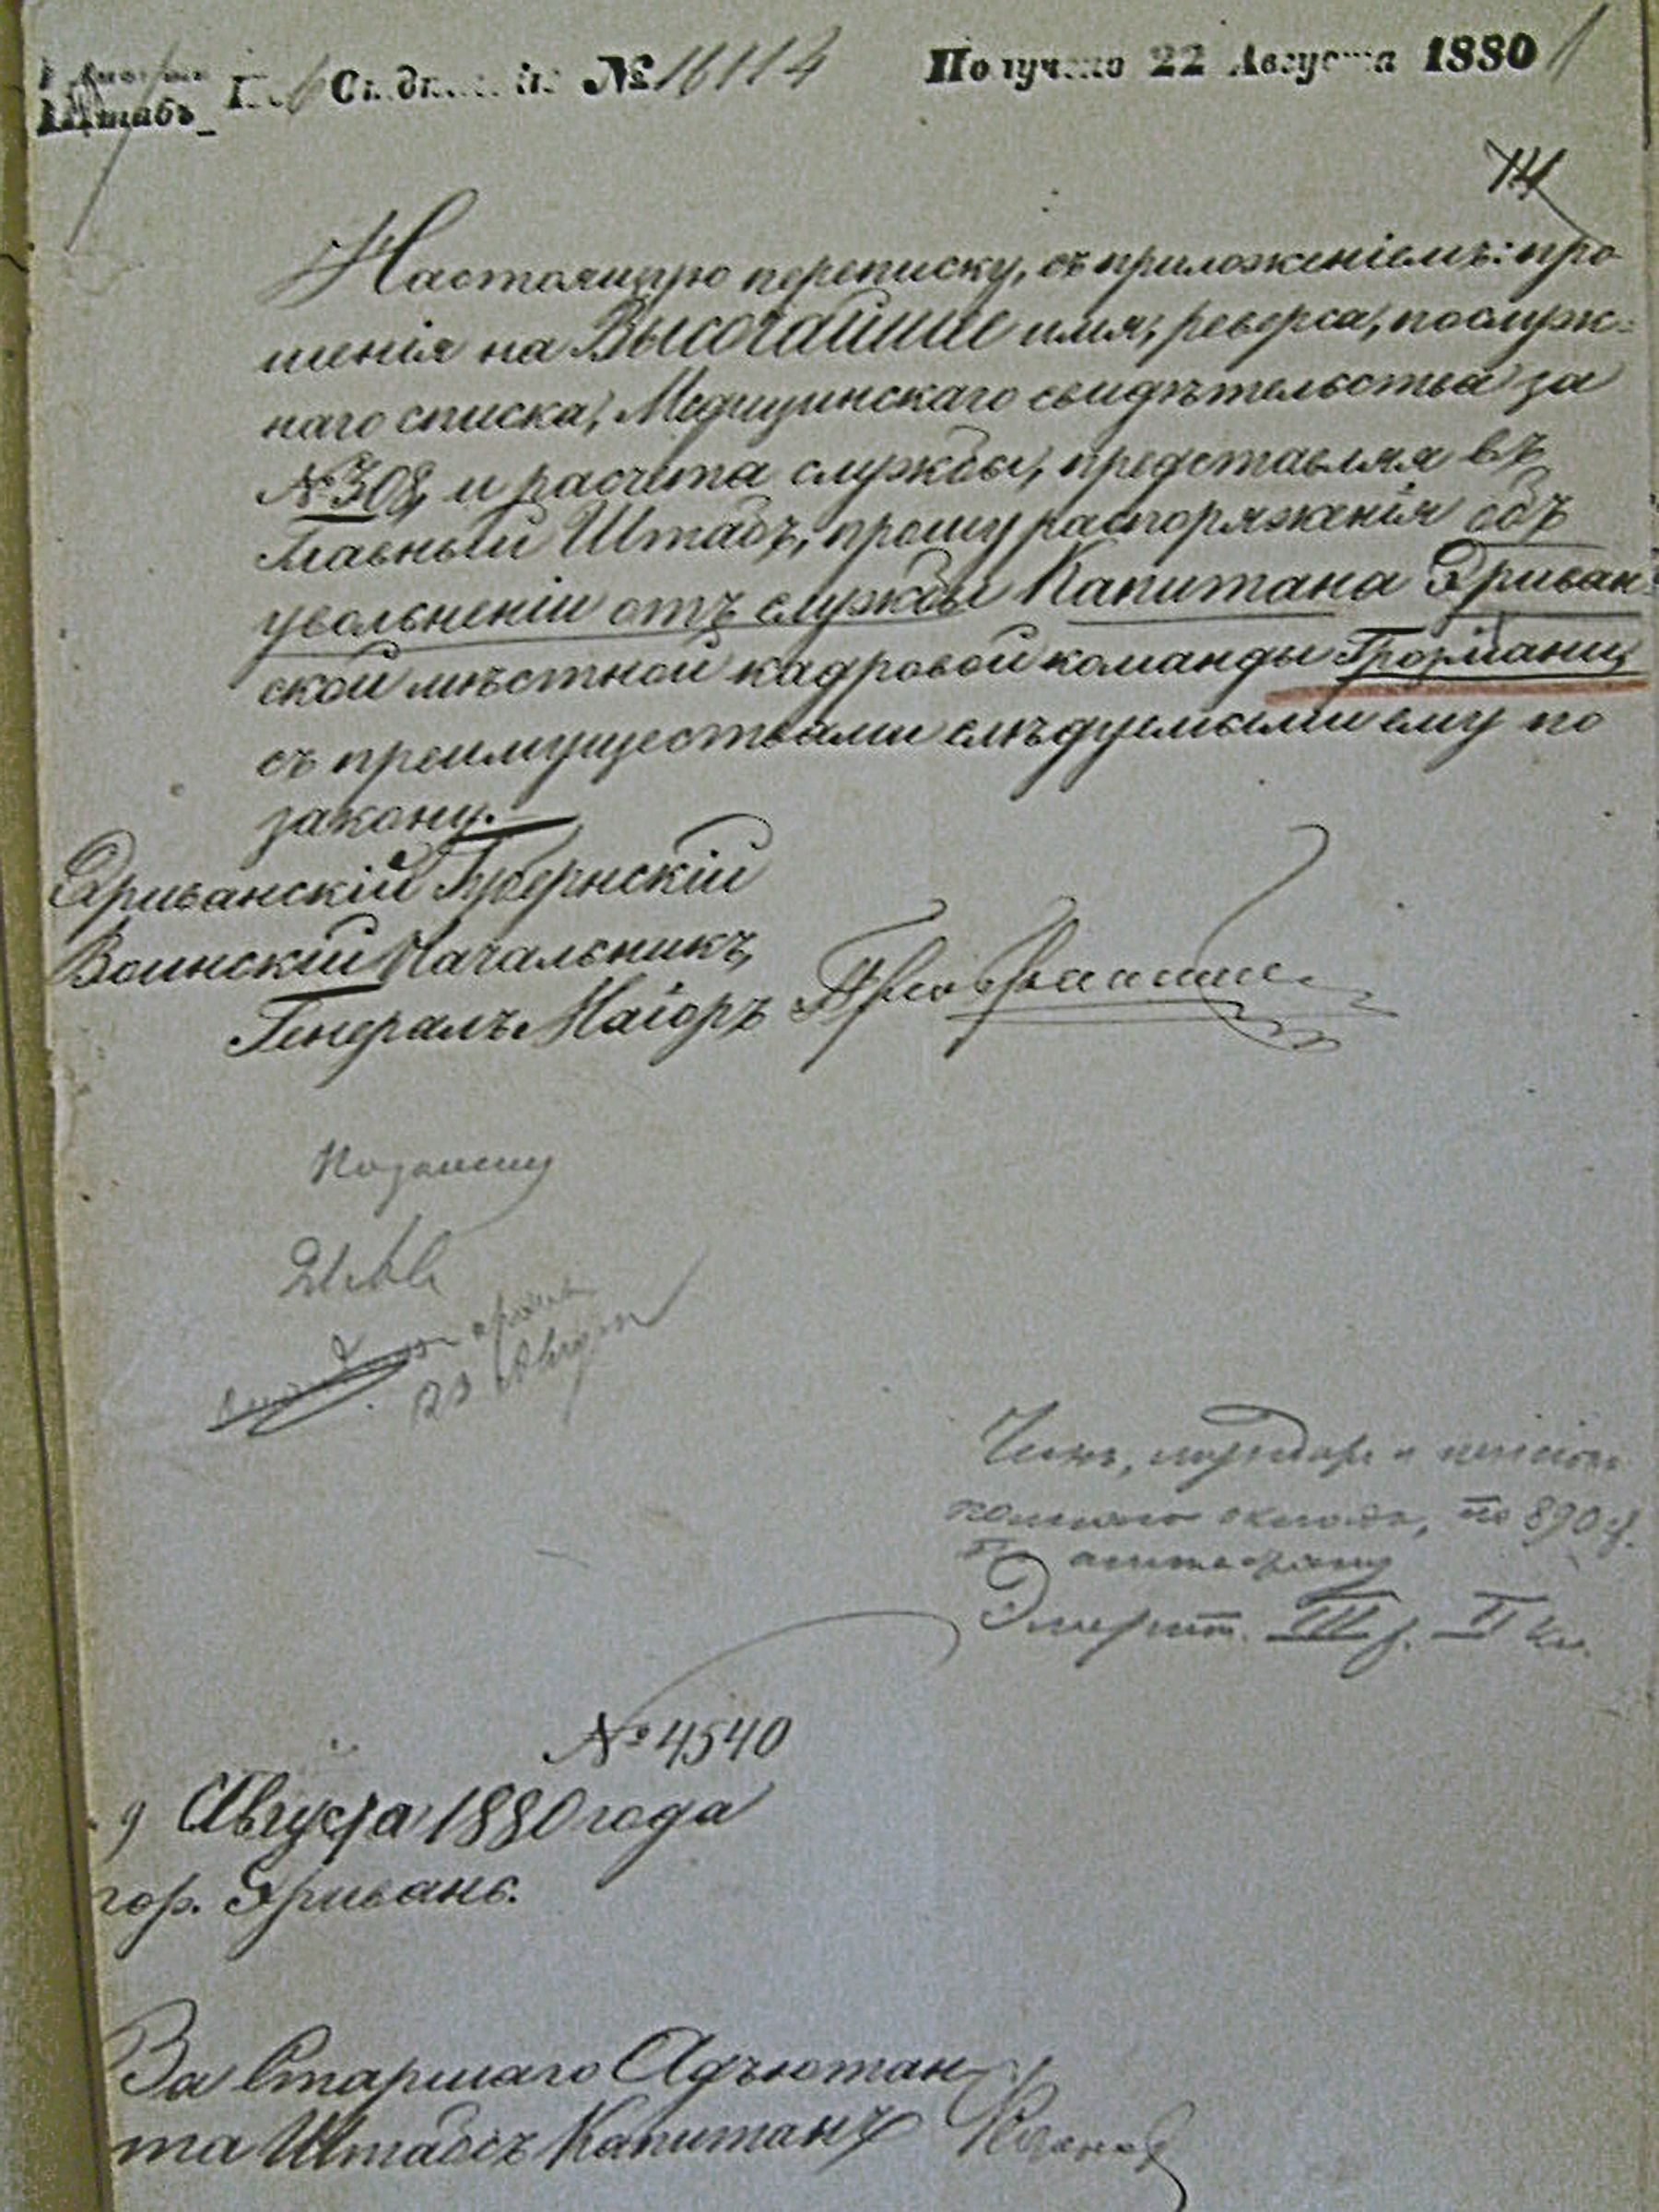 Штабъ № 16114 Получено 22 Августа 1880
14
Настоящую переписку, съ приложеніемъ: про
шенія на Высочайшее имя, реверса, послуж-
наго списка, Медицинскаго свидѣтельства за
№ 308, и расчета службы, представляя въ
Главный Штабъ, прошу распоряженія объ
увольненіи отъ службы Капитана Эриван-
ской мѣстной кадровой команды
съ преимуществами слѣдуемыми ему по
закону.
Эриванскій Губернскій
Воинскій Начальникъ,
Генералъ Маіоръ
23 Августа
Чинъ, мундиръ и пенсіонъ
полнаго оклада, по 890 ст.
Эмерит. III р. II кл.
№ 4540
9 Августа 1880 года
гор. Эривань.
За Старшаго Адъютан-
та Штабсъ Капитанъ